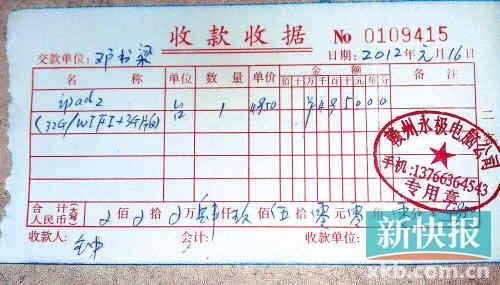 收款收据 No 0109415
交款单位： 邓书梁 日期：2012年元月16日
名称 单位 数量 单价 金额 备注
佰十万千百十元角分
ipad2 台 1 4950 ¥495000
(32G/WIFI+3G片白)
赣州永极电脑公司
手机:13766364543
专用章
合计(大写)人民币 佰 拾 万肆仟玖佰伍拾零元零角 分
收款人： 会计： 收款单位：
新快报
xkb.com.cn